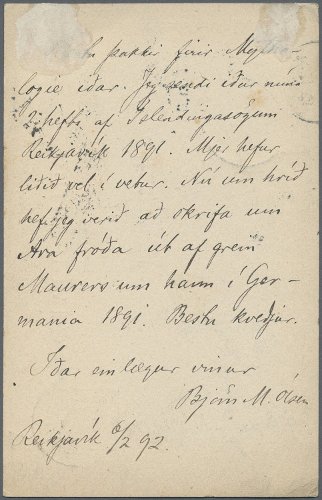 þakki firir Myþo-
logie iðar. Jeg sendi iður núna
2 hefti af Íslendingasögum
Reikjavík 1891. Mjer hefur
liðið vel í vetur. Nú um hríð
hef jeg verið að skrifa um
Ara fróða út af grein
Maurers um hann í Ger-
mania 1891. Bestu kveðjur.
Iðar einlægur vinur
Björn M. Ólsen
Reikjavík 6/2 92.